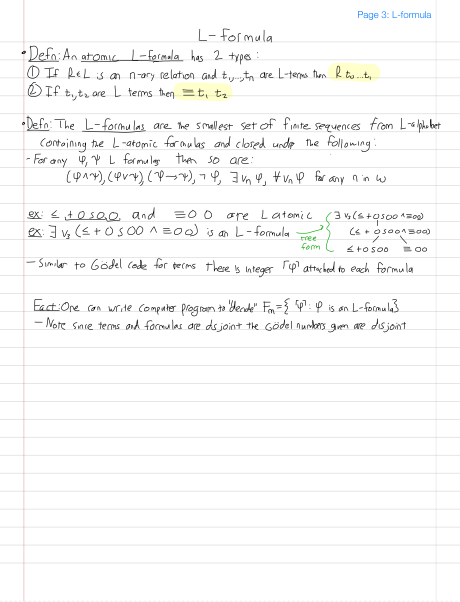 Page 3: L-formula
L-formula
• Defn: An atomic L-formula has 2 types:
① If R∈L is an n-ary relation and t₁,...,tₙ are L-terms then R t₀...t₁
② If t₁,t₂ are L terms then ≡ t₁ t₂
• Defn: The L-formulas are the smallest set of finite sequences from L-alphabet
containing the L-atomic formulas and closed under the following:
- For any φ, ψ L formulas then so are:
(φ∧ψ), (φ∨ψ), (φ→ψ), ¬φ, ∃vₙφ, ∀vₙφ for any n in ω
ex: ≤ + 0 S 0 0 and ≡ 0 0 are L atomic
ex: ∃ v₃ (≤ + 0 S 0 0 ∧ ≡ 0 0) is an L-formula
tree form
∃ v₃ (≤ + 0 S 0 0 ∧ ≡ 0 0)
(≤ + 0 S 0 0 ∧ ≡ 0 0)
≤ + 0 S 0 0 ≡ 0 0
- Similar to Gödel code for terms there is integer ⌈φ⌉ attached to each formula
Fact: One can write computer program to "decide" Fm = { ⌈φ⌉ : φ is an L-formula}
- Note since terms and formulas are disjoint the Gödel numbers given are disjoint